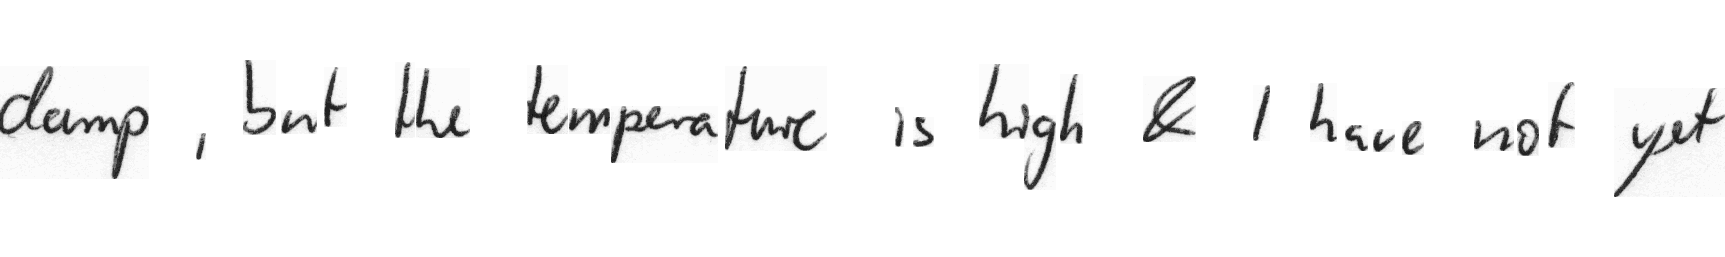 damp, but the temperature is high & I have not yet